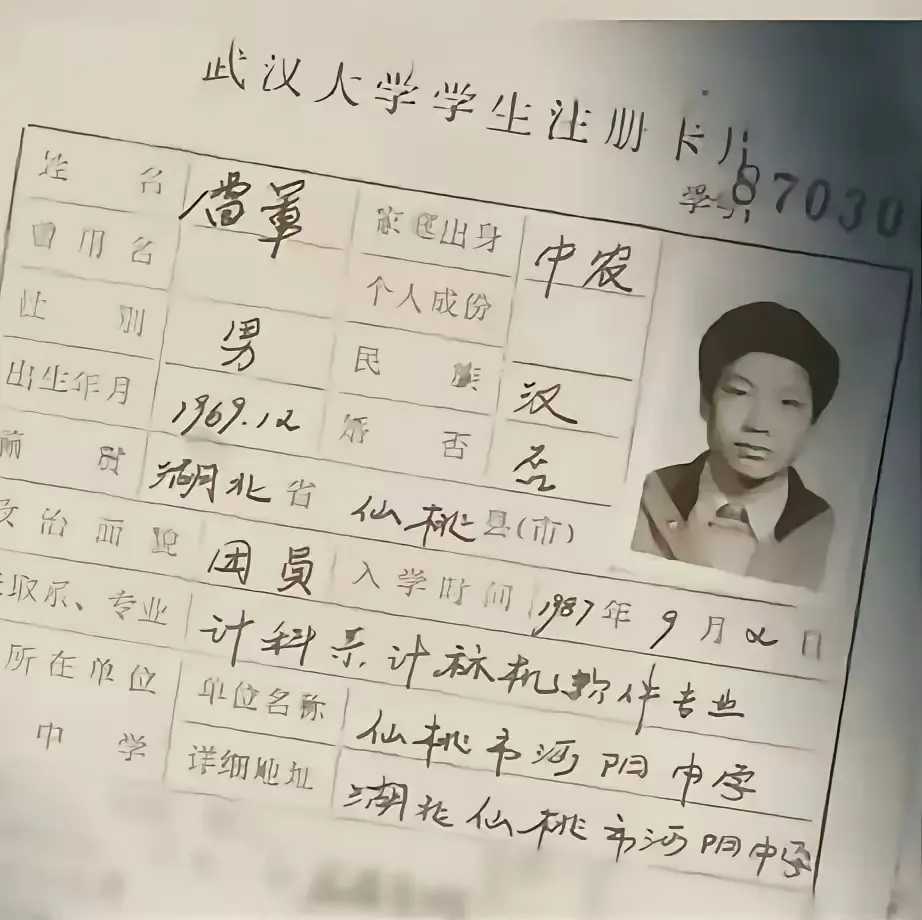 武汉大学学生注册卡片
学号 87030
姓名 家庭出身 中农
曾用名 个人成份
性别 男 民族 汉
出生年月 1969.12 婚否 否
籍贯 湖北省 仙桃县(市)
政治面貌 团员 入学时间 1987年9月2日
取系、专业 计科系计标机软件专业
所在单位 单位名称 仙桃市沔阳中学
中学 详细地址 湖北仙桃市沔阳中学